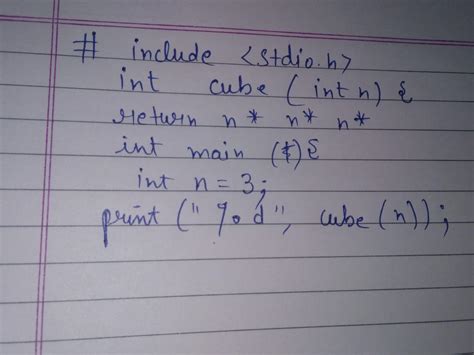 # include <stdio.h>
int cube (int n) {
return n* n* n*
int main () {
int n = 3;
print ("%d", cube (n));